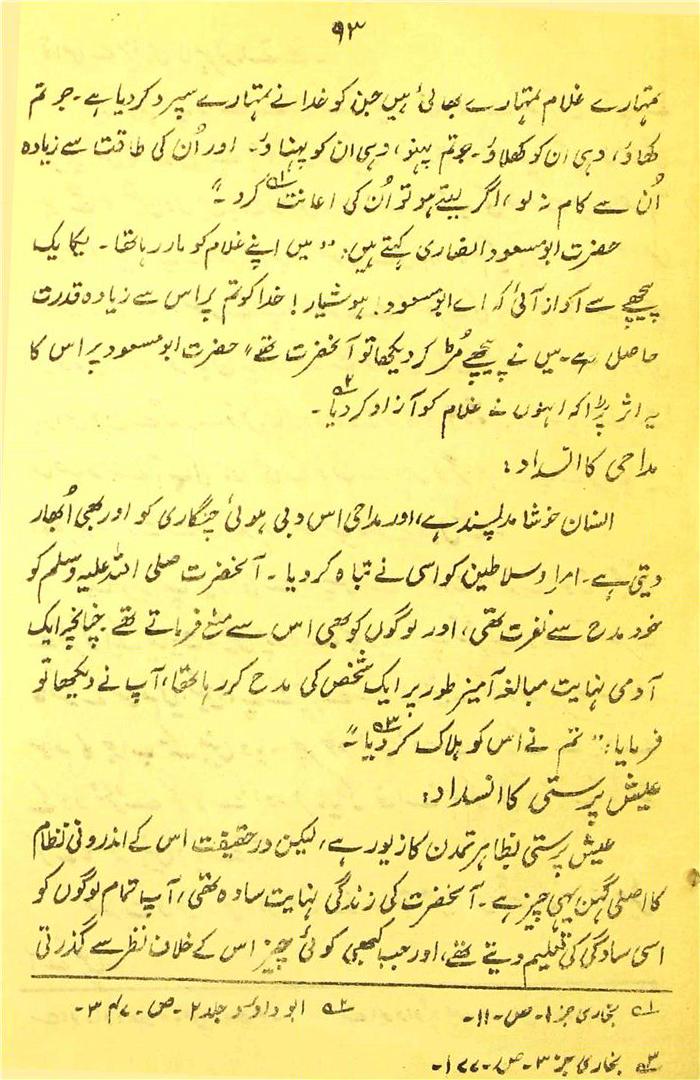 ۹۳
تمہارے غلام تمہارے بھائی ہیں جن کو خدا نے تمہارے سپرد کر دیا ہے۔ جو تم
کھاؤ، وہی ان کو کھلاؤ۔ جو تم پہنو، وہی ان کو پہناؤ۔ اور اُن کی طاقت سے زیادہ
اُن سے کام نہ لو، اگر لیتے ہو تو اُن کی اعانت کرو۔" ۱؎
حضرت ابو مسعود انصاری کہتے ہیں: "میں اپنے غلام کو مار رہا تھا۔ یکایک
پیچھے سے آواز آئی کہ اے ابو مسعود! ہوشیار! خدا کو تم پر اس سے زیادہ قدرت
حاصل ہے۔ میں نے پیچھے مُڑ کر دیکھا تو آنحضرت تھے" حضرت ابو مسعود پر اس کا
یہ اثر پڑا کہ انہوں نے غلام کو آزاد کر دیا ۲؎۔
مداحی کا انسداد:
انسان خوشامد پسند ہے، اور مداحی اس دبی ہوئی چنگاری کو اور بھی اُبھار
دیتی ہے۔ امراء و سلاطین کو اسی نے تباہ کر دیا۔ آنحضرت صلی اللہ علیہ وسلم کو
خود مدح سے نفرت تھی، اور لوگوں کو بھی اس سے منع فرماتے تھے۔ چنانچہ ایک
آدمی نہایت مبالغہ آمیز طور پر ایک شخص کی مدح کر رہا تھا، آپ نے دیکھا تو
فرمایا: "تم نے اس کو ہلاک کر دیا ۳؎"
عیش پرستی کا انسداد:
عیش پرستی بظاہر تمدن کا زیور ہے، لیکن درحقیقت اس کے اندرونی نظام
کا اصلی گھن یہی چیز ہے۔ آنحضرت کی زندگی نہایت سادہ تھی، آپ تمام لوگوں کو
اسی سادگی کی تعلیم دیتے تھے، اور جب کبھی کوئی چیز اس کے خلاف نظر سے گذرتی
۱؎ بخاری جز ۱۔ ص۔ ۱۱۔ ۲؎ ابوداؤد جلد ۲۔ ص۔ ۳۴۷۔
۳؎ بخاری جز ۳۔ ص۔ ۱۷۷۔